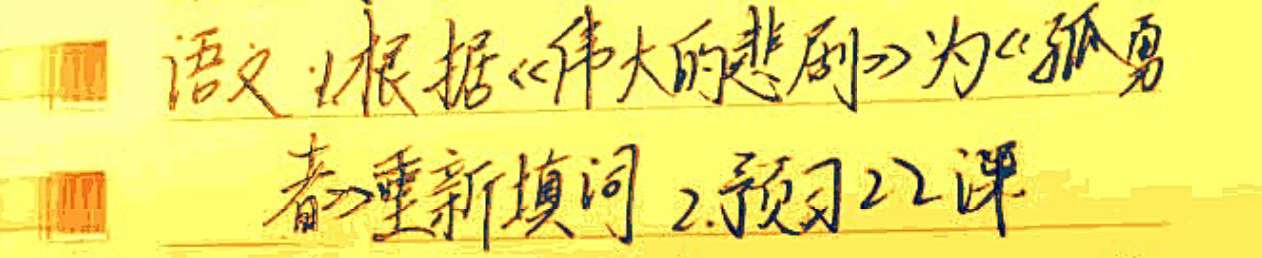 语文 1.根据《伟大的悲剧》为《孤勇
者》重新填词 2.预习22课